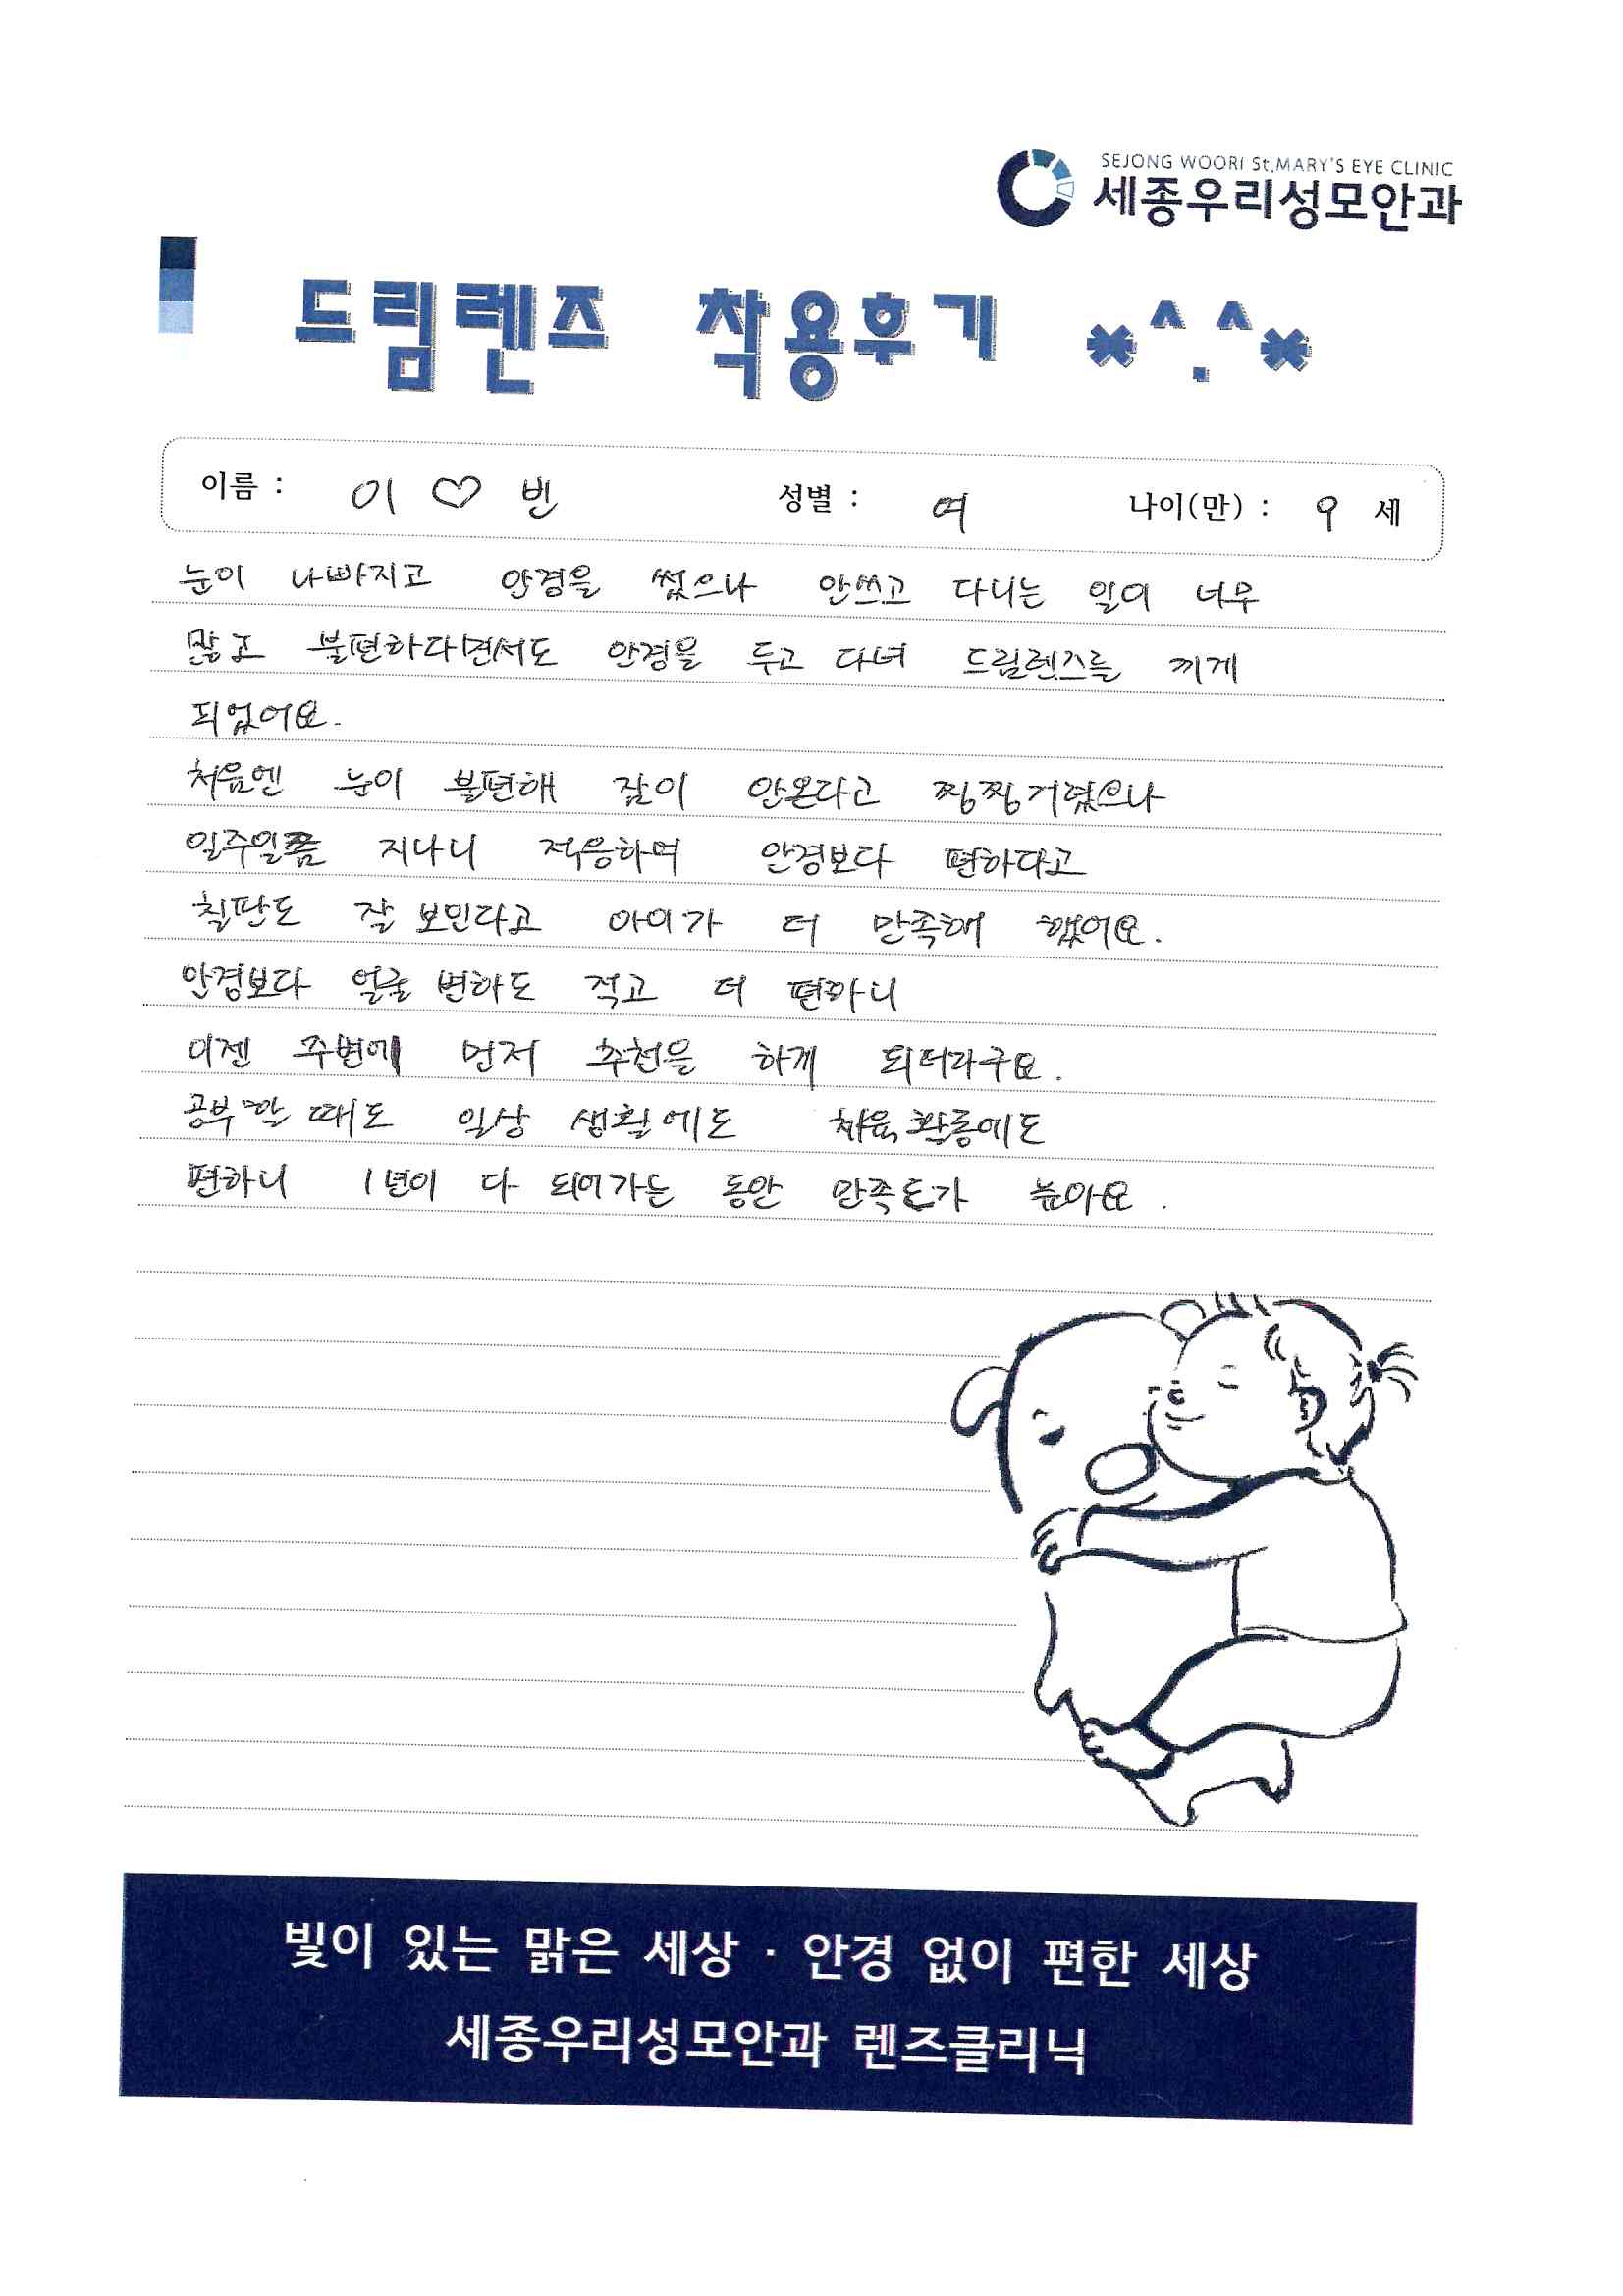 SEJONG WOORI St.MARY'S EYE CLINIC
세종우리성모안과
드림렌즈 착용후기 *^.^*
이름 : 이 ♡ 빈 성별 : 여 나이(만) : 9 세
눈이 나빠지고 안경을 썼으나 안쓰고 다니는 일이 너무
많고 불편하다면서도 안경을 두고 다녀 드림렌즈를 끼게
되었어요.
처음엔 눈이 불편해 잠이 안온다고 찡찡거렸으나
일주일쯤 지나니 적응하며 안경보다 편하다고
칠판도 잘 보인다고 아이가 더 만족해 했어요.
안경보다 얼굴 변화도 적고 더 편하니
이젠 주변에 먼저 추천을 하게 되더라구요.
공부할 때도 일상 생활에도 체육 활동에도
편하니 1년이 다 되어가는 동안 만족도가 높아요.
빛이 있는 맑은 세상 · 안경 없이 편한 세상
세종우리성모안과 렌즈클리닉